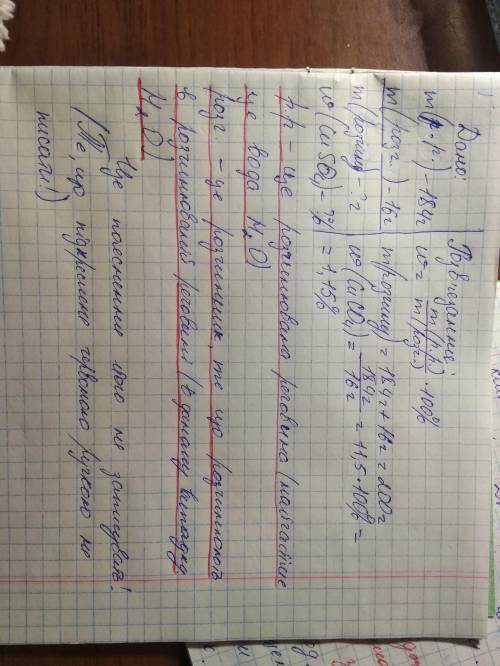 Дано:
m(р.р.) - 184г
m(розг.) - 16г
m(розчину) - ?г
w(CuSO4) - ?%
Розв'язання:
w = m(р.р.) / m(розг.) · 100%
m(розчину) = 184г + 16г = 200г
w(CuSO4) = 184г / 16г = 11,5 · 100% =
= 1,15%
р.р - це розчинювана речовина (найчастіше
це вода H2O)
розг. - це розчинник, те що розчиняють
в розчинюваній речовині (в даному випадку
H2O)
Це пояснення його не записувать!
(Те, що підкреслене червоною ручкою не
писать!)